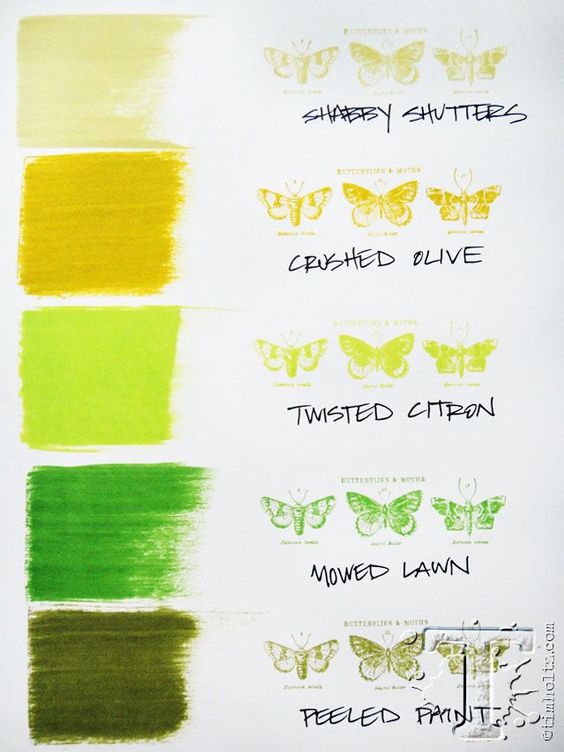 BUTTERFLIES & MOTHS
SHABBY SHUTTERS
BUTTERFLIES & MOTHS
CRUSHED OLIVE
BUTTERFLIES & MOTHS
TWISTED CITRON
BUTTERFLIES & MOTHS
MOWED LAWN
BUTTERFLIES & MOTHS
PEELED PAINT
T
©timholtz.com